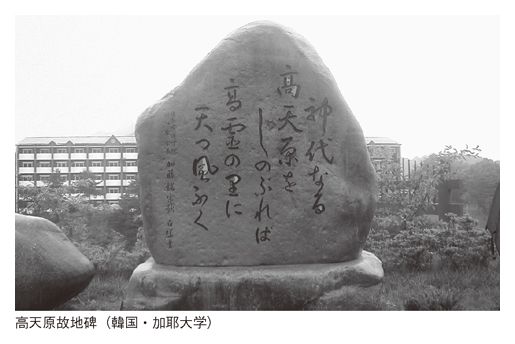 神代なる
高天原を
しのぶれば
高霊の里に
天つ風ふく
高天原故地碑（韓国・加耶大学）